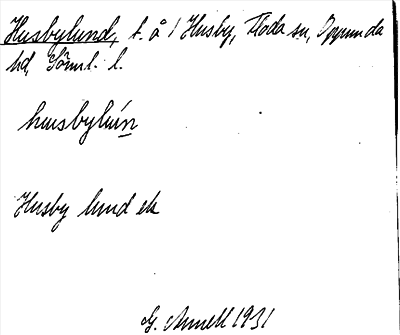 Husbylund, t. å 1 Husby, Floda sn, Oppunda
hd, Söml. l.
husbylún
Husby lund ek
G. Arnell 1931